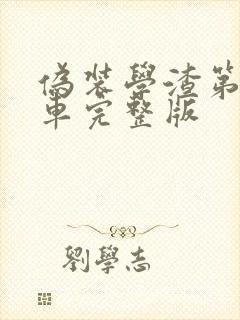 偽裝學渣第
車完整版
劉學志